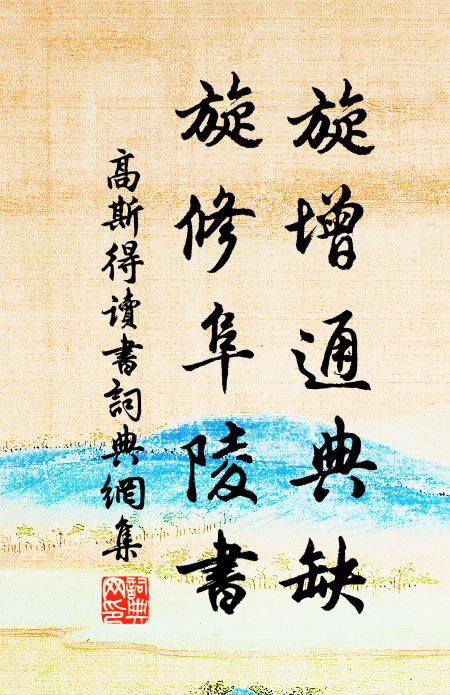 旋增通典缺
旋修阜陵書
高斯得讀書詞典網集
詞典